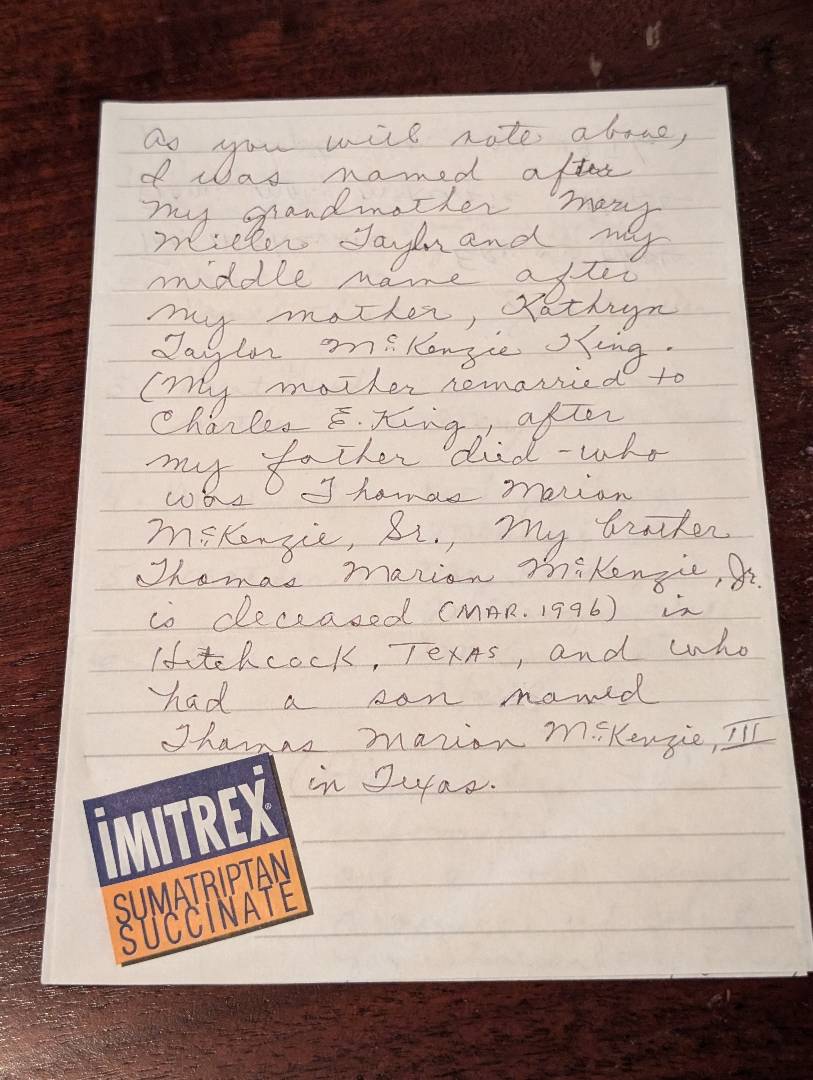 As you will note above,
I was named after
my grandmother Mary
Miller Taylor and my
middle name after
my mother, Kathryn
Taylor McKenzie King.
(My mother remarried to
Charles E. King, after
my father died - who
was Thomas Marion
McKenzie, Sr., My brother
Thomas Marion McKenzie, Jr.
is deceased (MAR. 1996) in
Hitchcock, TEXAS, and who
had a son named
Thomas Marion McKenzie, III
in Texas.
iMITREX®
SUMATRIPTAN
SUCCINATE